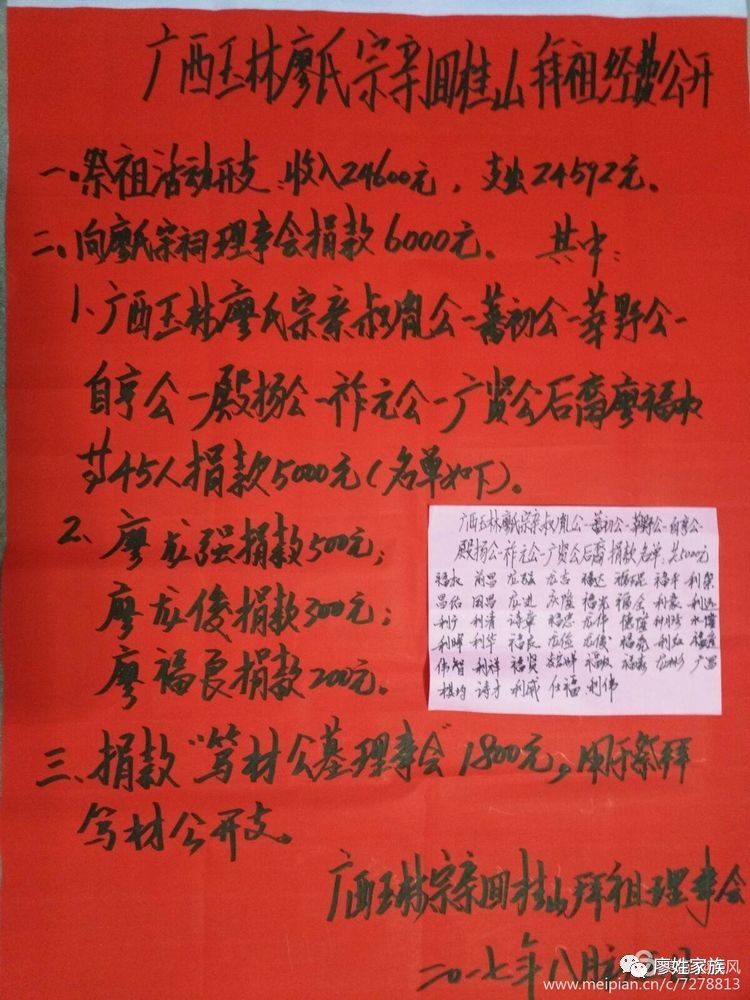 广西玉林廖氏宗亲回桂山拜祖经费公开
一、祭祖活动开支:收入24600元,支出24592元。
二、向廖氏宗祠理事会捐款6000元。其中:
1、广西玉林廖氏宗亲叔胤公—蕃初公—莘野公—
自亨公—殿扬公—祚元公—广贤公后裔廖福
等45人捐款5000元(名单如下)。
2、廖龙强捐款500元;
廖龙俊捐款300元;
廖福良捐款200元。
广西玉林廖氏宗亲叔胤公—蕃初公—莘野公—自亨公—
殿扬公—祚元公—广贤公后裔捐款名单,共5000元
福 昌 龙 龙志 福达 福 福平 利荣
昌佑 国昌 龙进 庆隆 福光 福全 利豪 利
利宁 利清 诗章 福忠 龙伟 德隆 水隆
利晖 利华 福良 龙俭 龙俊 福 利 福
伟智 利祥 福贤 福 福 龙彬 广昌
棋均 诗才 利威 仕福 利伟
三、捐款“笃材公墓理事会”1800元,用于祭拜
笃材公开支。
广西玉林宗亲回桂山拜祖理事会
二〇一七年八月
廖姓家族
www.meipian.cn/c/7278813